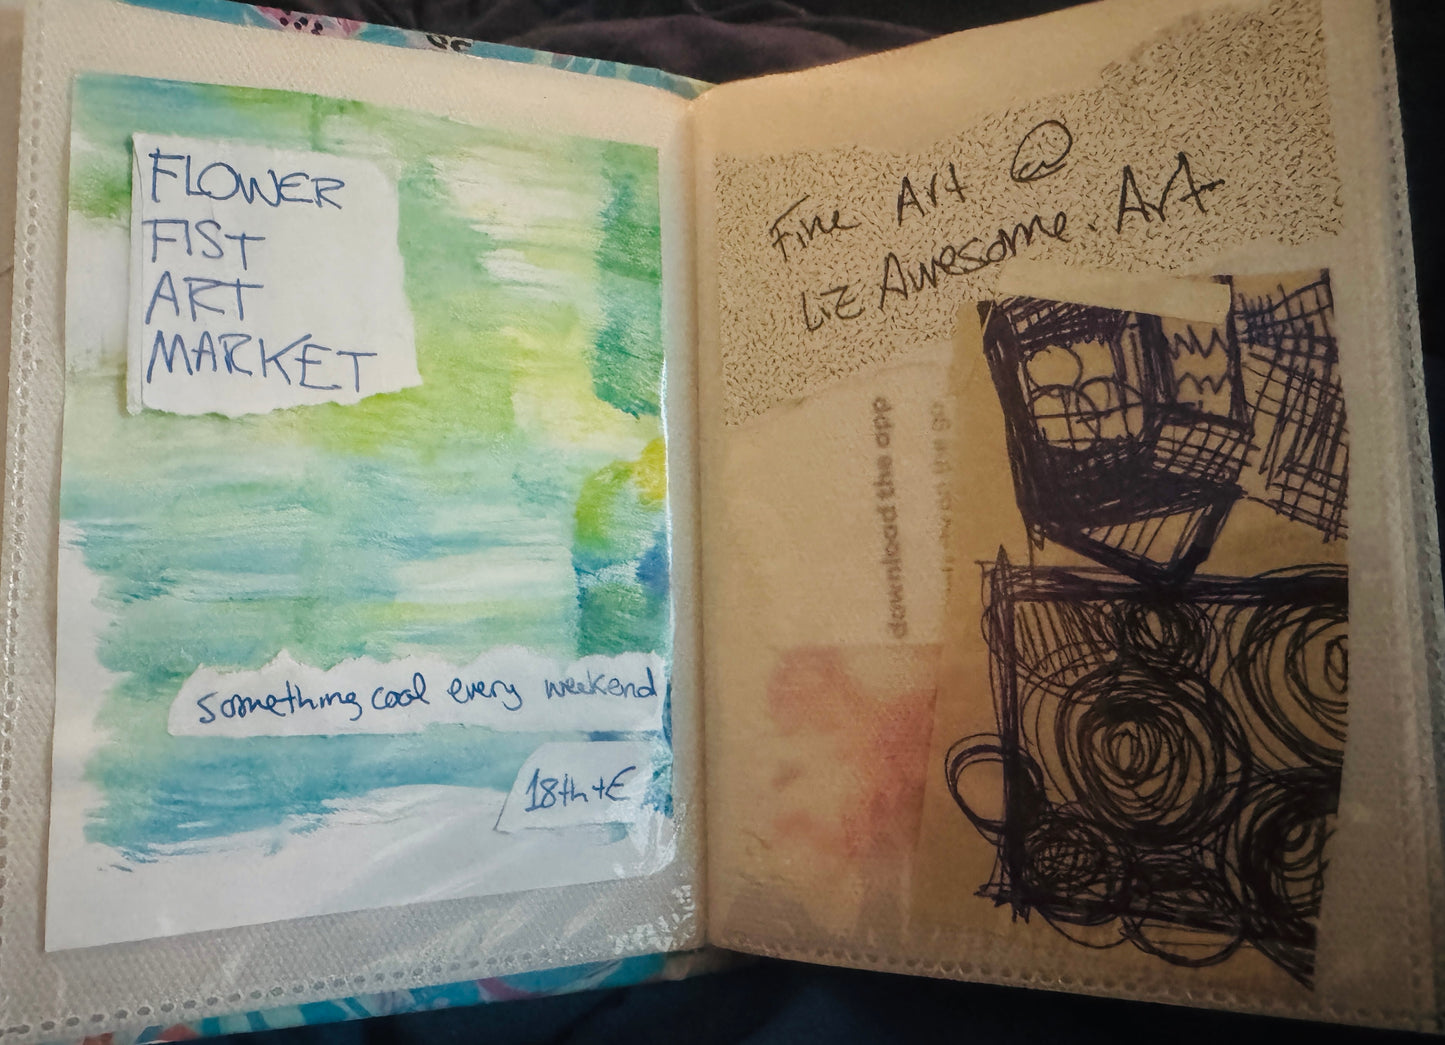 FLOWER
FIST
ART
MARKET
something cool every weekend
18th + E
Fine Art @
Liz Awesome. Art
download the app